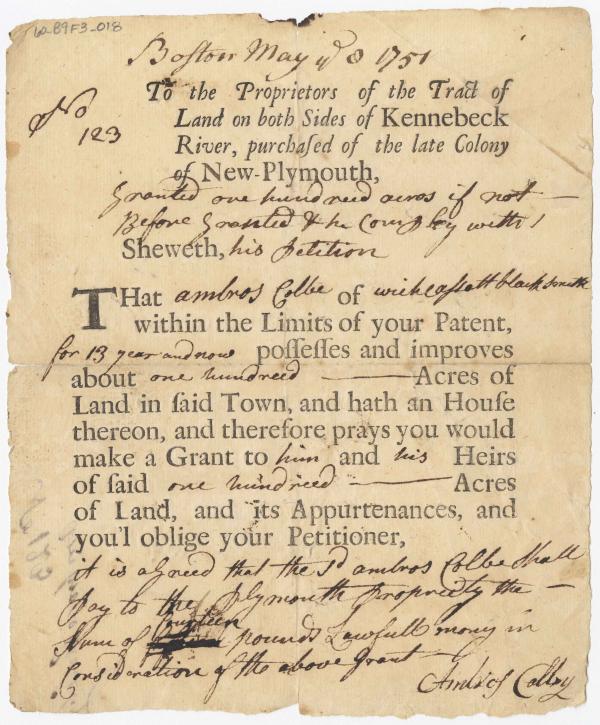 62-89F3-018
Boston May ye 8 1751
No
123
To the Proprietors of the Tract of
Land on both Sides of Kennebeck
River, purchaſed of the late Colony
of New-Plymouth,
Granted one hundreed acros if not —
Before Granted & he Comploy with
Sheweth, his Petition
THat ambros Colbe of wichcassett blacksmith
within the Limits of your Patent,
for 13 year and now poſſeſſes and improves
about one hundreed —— Acres of
Land in ſaid Town, and hath an Houſe
thereon, and therefore prays you would
make a Grant to him and his Heirs
of ſaid one hundreed —— Acres
of Land, and its Appurtenances, and
you'l oblige your Petitioner,
it is agreed that the sd ambros Colbe Shall
Pay to the Plymouth Propriety the —
fourteen
Sum of pounds Lawfull mony in
Consideration of the above Grant —
Ambros Colby
No 123